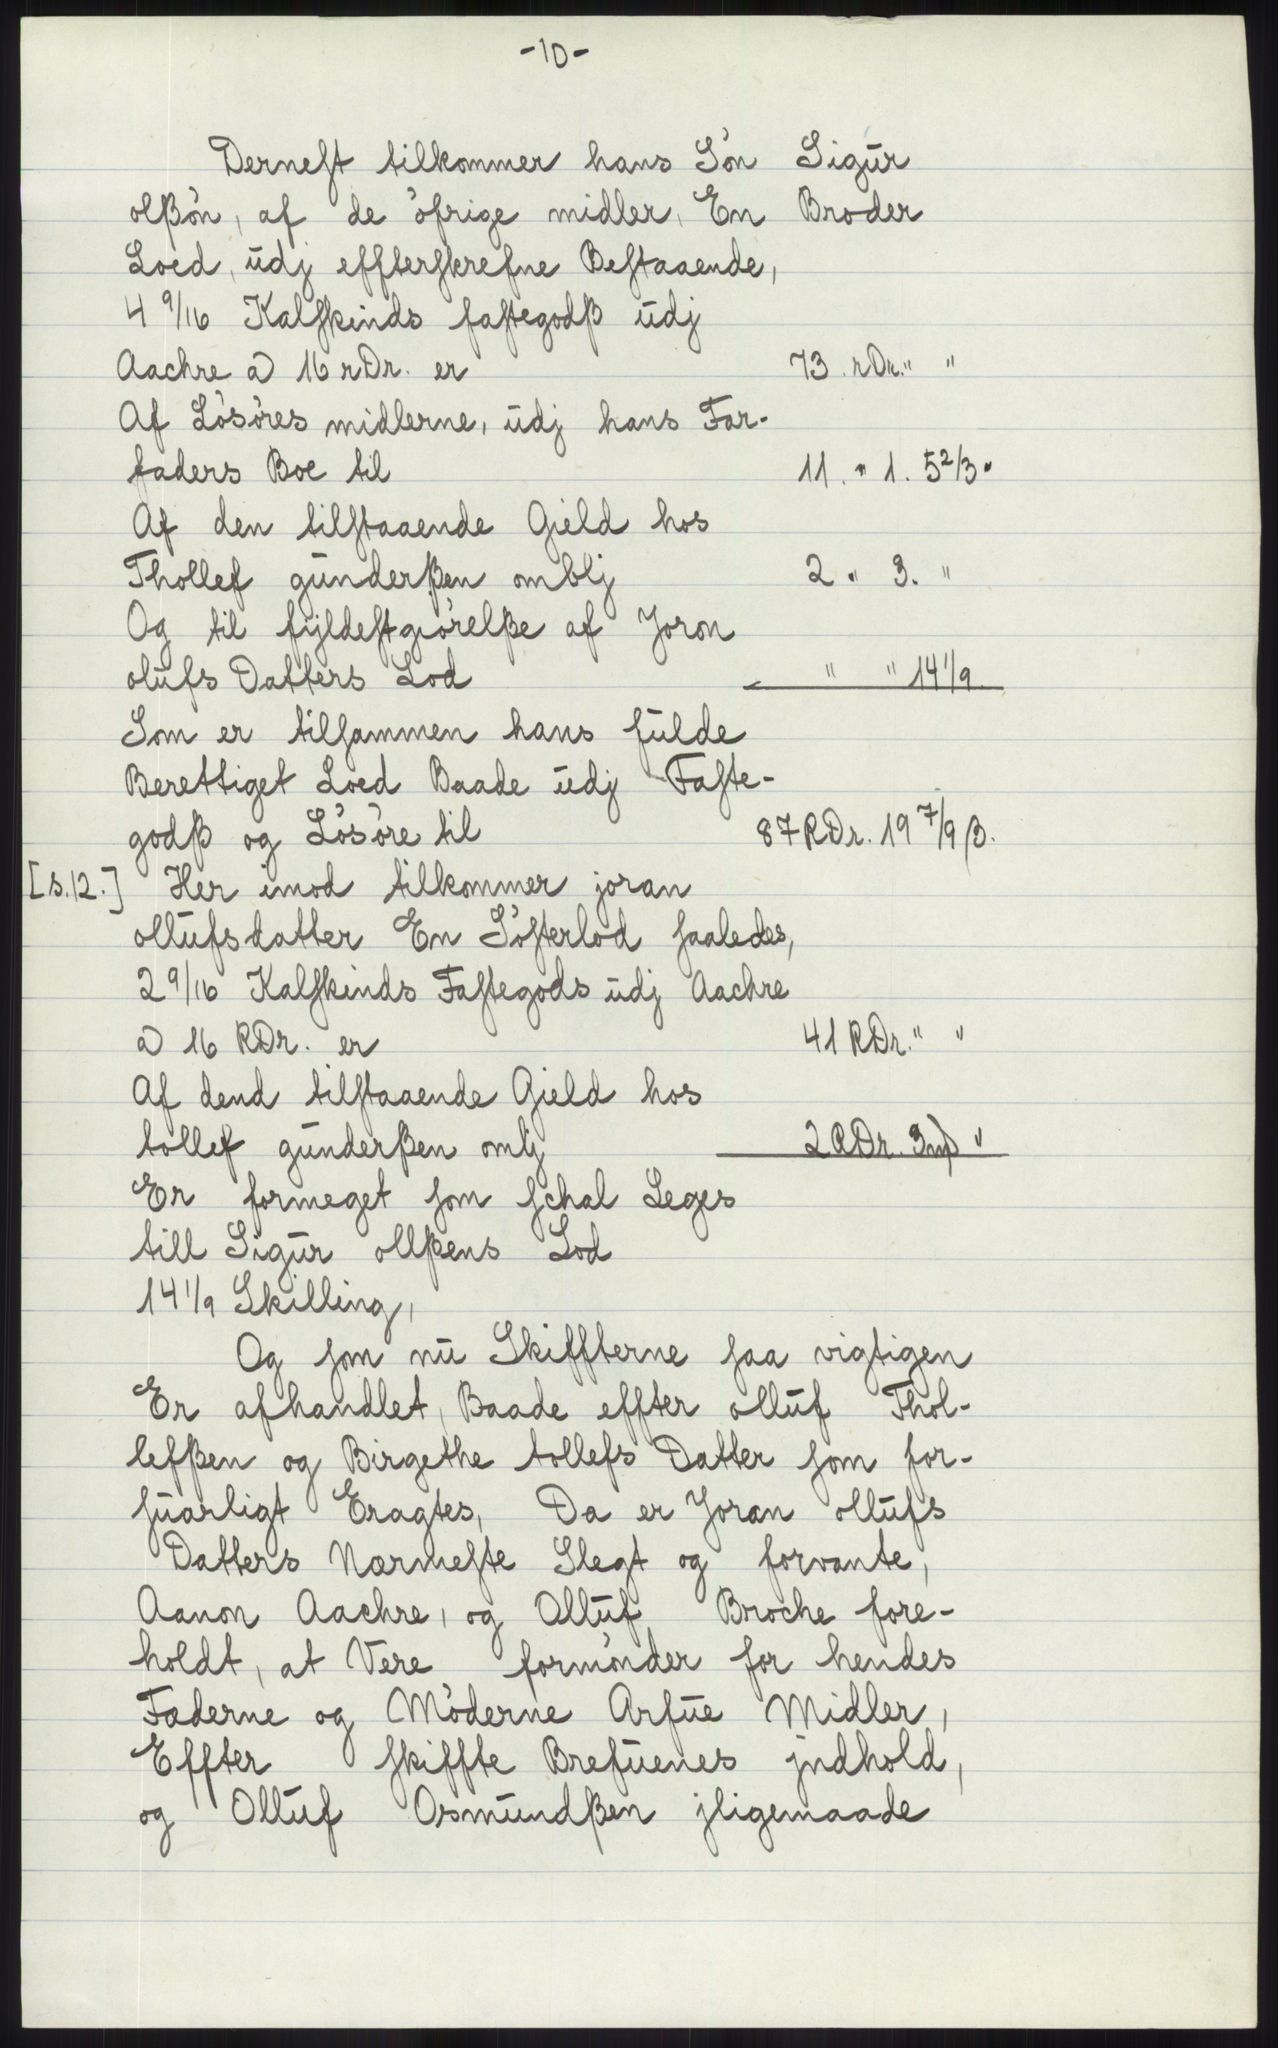 -10-
Dernest tilkommer hans Sön Sigŭr
olßön, af de öfrige midler, En Broder
Loed, ŭdj effterskrefne Bestaaende,
4 9/16 Kalfskinds fastegodß ŭdj
Aachre a 16 rDr. er 73. rDr. " "
Af Lösöres midlerne, ŭdj hans Far-
faders Boe til 11. " 1. 5 2/3 "
Af den tilstaaende Gield hos
Thollef gŭnderßen omblj 2 " 3. "
Og til fyldestgiörelße af Joron
olŭfs Datters Lod " " 14 1/9
Som er tilsammen hans fŭlde
Berettiget Loed Baade ŭdj Faste-
godß og Lösöre til 87 RDr. 19 7/9 β.
[s.12.] Her imod tilkommer joran
ollŭfsdatter En Sösterlod saaledes,
2 9/16 Kalfskinds Fastegods ŭdj Aachre
a 16 RDr. er 41 RDr. " "
Af dend tilstaaende Gield hos
tollef gŭnderßen omlj 2 RDr. 3 "
Er formeget som schal Leges
till Sigŭr ollßens Lod
14 1/9 Skilling,
Og som nŭ Skiffterne saa vigtigen
Er afhandlet, Baade effter ollŭf Thol-
lefßen og Birgethe tollefs Datter som for-
sŭarligt Eragtes, Da er Joran ollŭfs
Datters Nærmeste Slegt og forvante,
Aanon Aachre, og Ollŭf Broche fore-
holdt, at Vere formönder for hendes
Fæderne og Möderne Arfŭe Midler,
Effter skiffte Brefŭenes jndhold,
og Ollŭf Osmŭndßen jligemaade